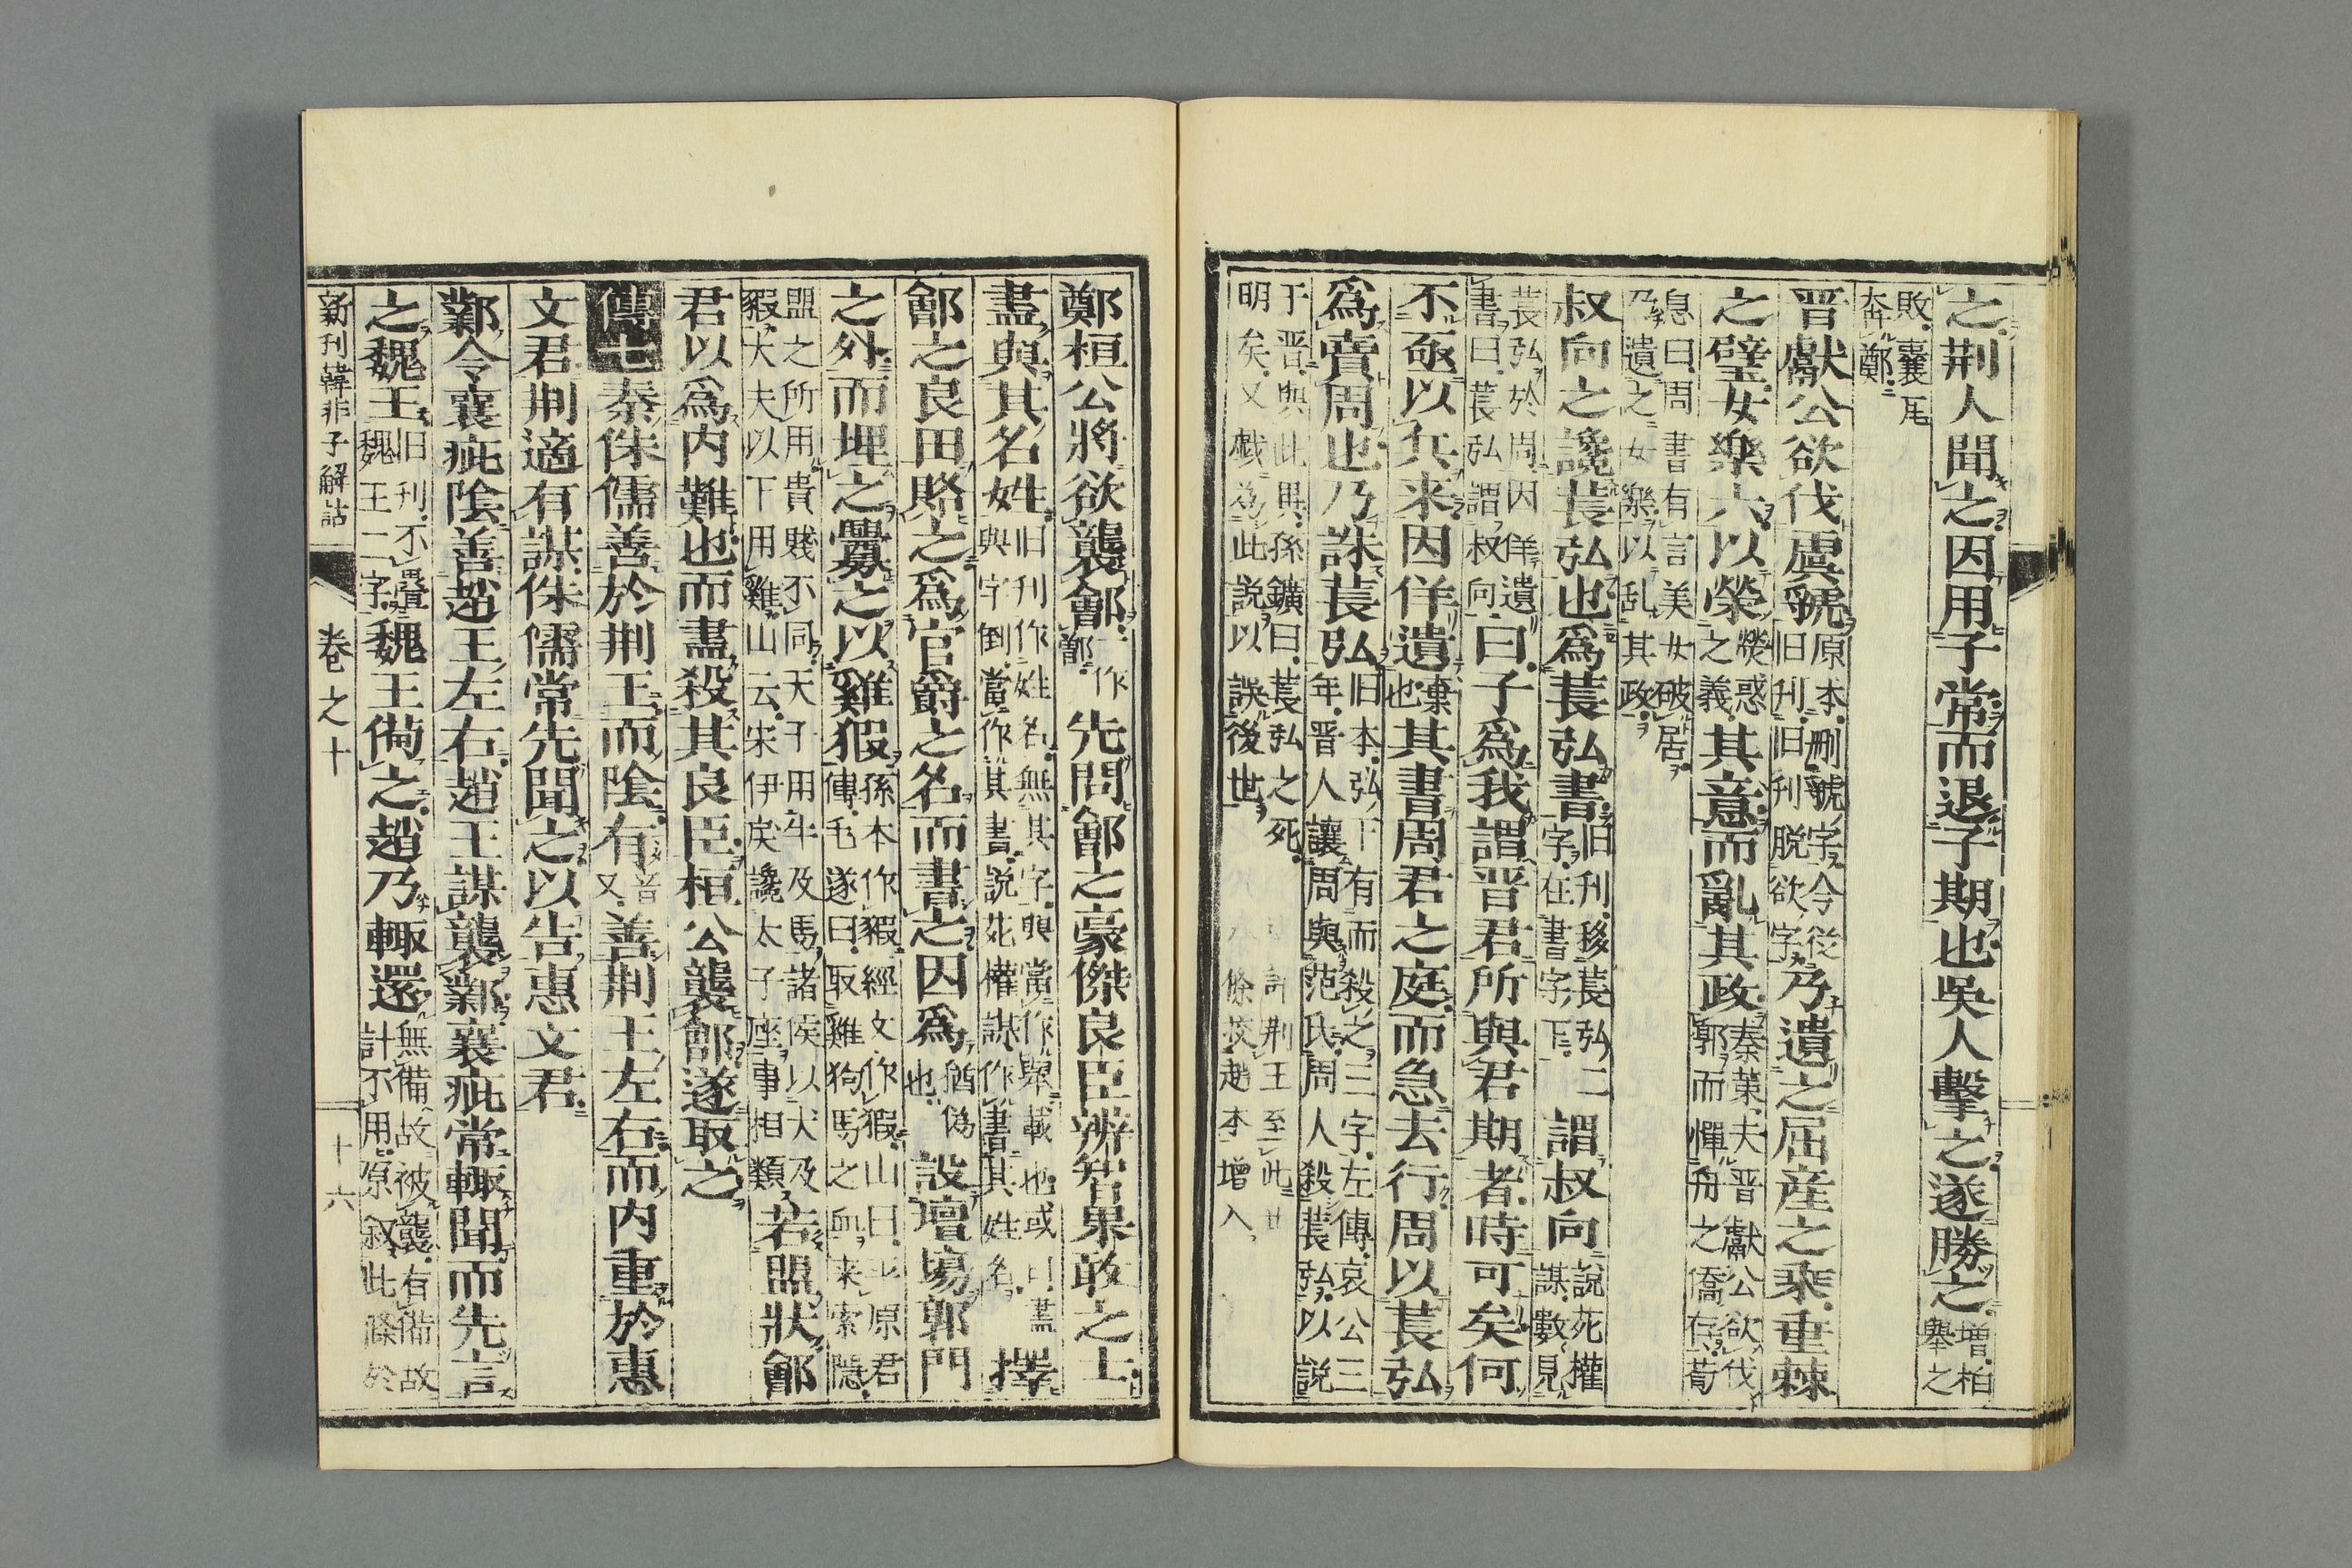 之荆人聞之因用子常而退子期也吳人擊之遂勝之增柏舉之
敗囊瓦奔鄭
晋獻公欲伐虞虢原本刪虢字今從旧刊旧刊脫欲字乃遺之屈産之乘垂棘
之璧女樂六以榮熒惑之義其意而亂其政秦策夫晋獻公欲伐郭而憚舟之僑存荀
息曰周書有言美女破居乃遺之女樂以乱其政
叔向之讒萇弘也爲萇弘書旧刊移萇弘二字在書字下謂叔向說苑權謀數見
萇弘於周因佯遺書曰萇弘謂叔向曰子爲我謂晋君所與君期者時可矣何
不亟以兵来因佯遺棄也其書周君之庭而急去行周以萇弘
爲賣周也乃誅萇弘旧本弘下有而殺之三字左傳哀公三年晋人讓周與范氏周人殺萇弘以説
于晋與此異孫鑛曰萇弘之死明矣又戲為此説以誤後世
鄭桓公將欲襲鄶作鄫先問鄶之豪傑良臣辨智果敢之士
盡與其名姓旧刊作姓名無其字與當作舉載也或曰盡與字倒當作其書説苑權謀作書其姓名擇
鄶之良田賂之爲官爵之名而書之因爲猶偽也設壇場郭門
之外而埋之釁之以雞猳孫本作豭經文作猳山曰平原君傳毛遂曰取雞狗馬之血来索隱
盟之所用貴賤不同天子用牛及馬諸侯以犬及豭大夫以下用雞山云宋伊戾讒太子座事相類若盟狀鄶
君以爲内難也而盡殺其良臣桓公襲鄶遂取之
傳七秦侏儒善於荆王而陰有音又善荆王左右而内重於惠
文君荆適有謀侏儒常先聞之以告惠文君
鄴令襄疵陰善趙王左右趙王謀襲鄴襄疵常輒聞而先言
之魏王旧刊不疊魏王二字魏王備之趙乃輒還無備故被襲有備故計不用原叙此條於
新刊韓非子解詁　卷之十　十六